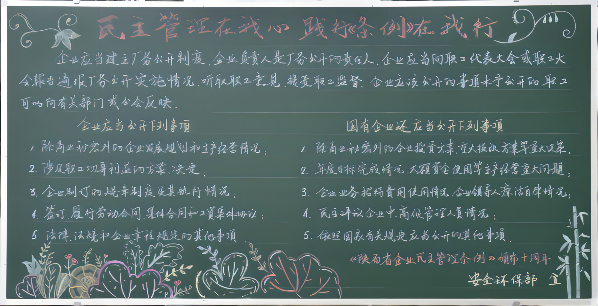 民主管理在我心 践行《条例》在我行
企业应当建立厂务公开制度，企业负责人是厂务公开的责任人，企业应当向职工代表大会或职工大
会报告通报厂务公开实施情况，听取职工意见，接受职工监督。企业应该公开的事项未予公开的，职工
可以向有关部门或公会反映。
企业应当公开下列事项
1. 除商业秘密外的企业发展规划和生产经营情况；
2. 涉及职工切身利益的方案、决定；
3. 企业制订的规章制度及其执行情况；
4. 签订、履行劳动合同、集体合同和工资集体协议；
5. 法律、法规和企业章程规定的其他事项
国有企业还应当公开下列事项
1. 除商业秘密外的企业投资方案，重大技改方案等重大决策；
2. 年度目标完成情况，大额资金使用等生产经营重大问题；
3. 企业业务招待费用使用情况，企业领导人廉洁自律情况；
4. 民主评议企业中高级管理人员情况；
5. 依照国家有关规定应当公开的其他事项
《陕西省企业民主管理条例》颁布十周年
安全环保部 宣